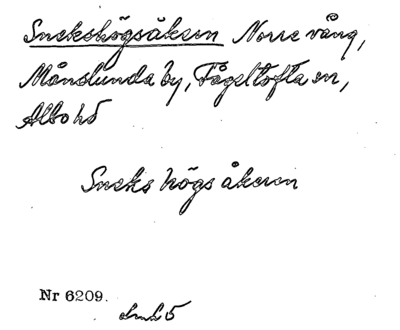 Snekshögsåkern Norre vång,
Månslunda by, Fågeltofta sn,
Albo hd
Sneks högs åkeren
Nr 6209.